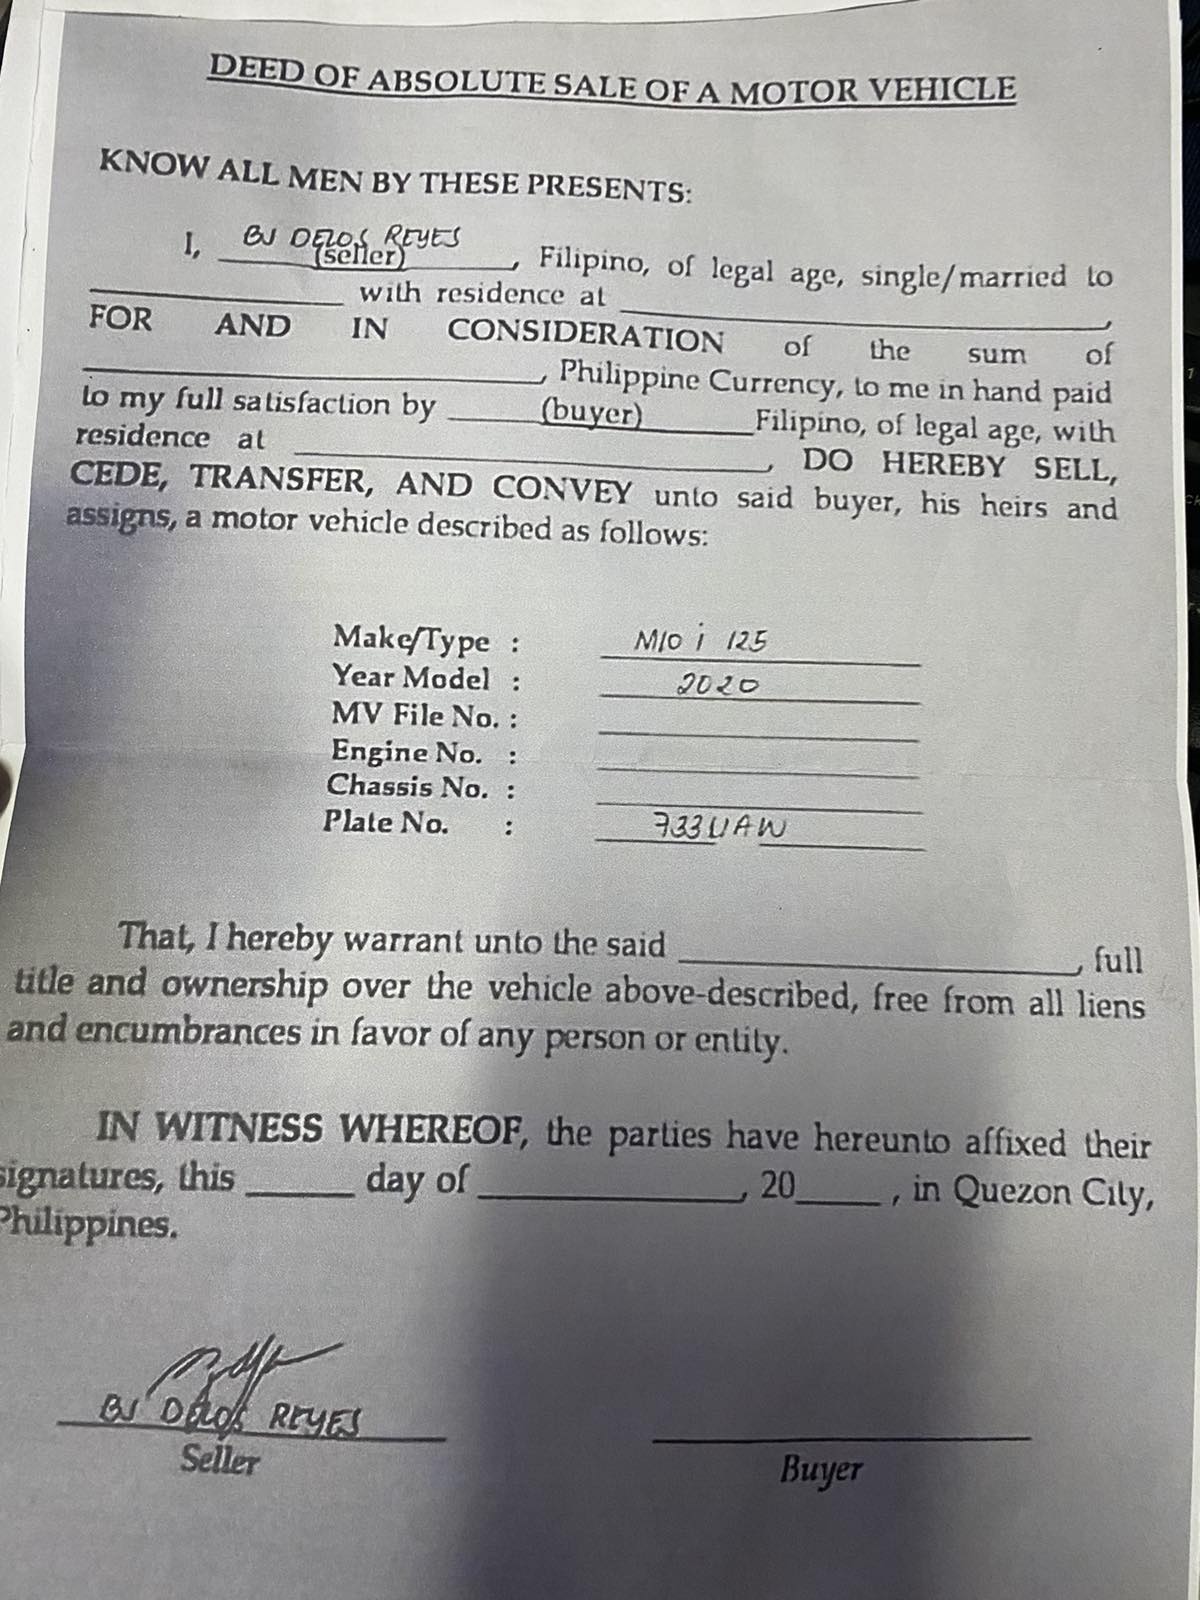 DEED OF ABSOLUTE SALE OF A MOTOR VEHICLE
KNOW ALL MEN BY THESE PRESENTS:
I, BJ DELOS REYES (seller), Filipino, of legal age, single/married to
with residence at ,
FOR AND IN CONSIDERATION of the sum of
, Philippine Currency, to me in hand paid
to my full satisfaction by (buyer) Filipino, of legal age, with
residence at , DO HEREBY SELL,
CEDE, TRANSFER, AND CONVEY unto said buyer, his heirs and
assigns, a motor vehicle described as follows:
Make/Type : MIO i 125
Year Model : 2020
MV File No. :
Engine No. :
Chassis No. :
Plate No. : 733UAW
That, I hereby warrant unto the said , full
title and ownership over the vehicle above-described, free from all liens
and encumbrances in favor of any person or entity.
IN WITNESS WHEREOF, the parties have hereunto affixed their
signatures, this day of , 20 , in Quezon City,
Philippines.
BJ DELOS REYES
Seller
Buyer